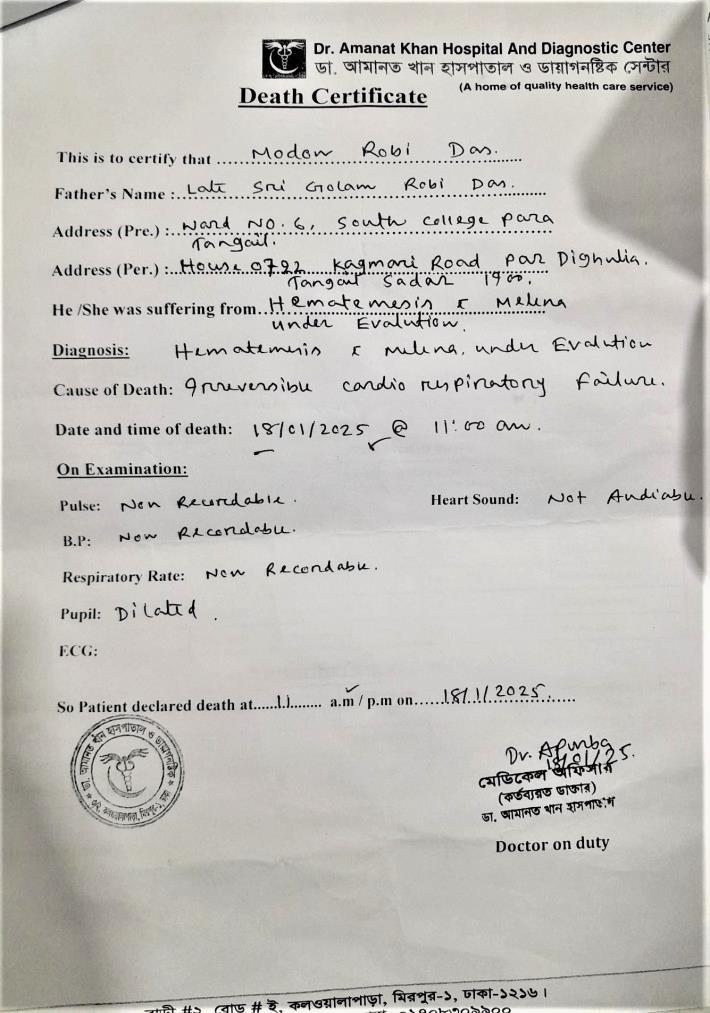 Dr. Amanat Khan Hospital And Diagnostic Center
ডা. আমানত খান হাসপাতাল ও ডায়াগনষ্টিক সেন্টার
(A home of quality health care service)
Death Certificate
This is to certify that Modon Robi Das.
Father's Name : Late Sri Golam Robi Das.
Address (Pre.) : Ward No. 6, South college para
Tangail.
Address (Per.) : House 0722 Kagmari Road Par Dighulia.
Tangail Sadar 1900.
He /She was suffering from Hematemesis & Melena
under Evalution.
Diagnosis: Hematemesis & Melena, under Evalution
Cause of Death: Irreversible cardio respiratory failure.
Date and time of death: 18/01/2025 @ 11:00 am.
On Examination:
Pulse: Non Recordable. Heart Sound: Not Audiable.
B.P: Non Recordable.
Respiratory Rate: Non Recordable.
Pupil: Dilated.
ECG:
So Patient declared death at......11........ a.m / p.m on......18/1/2025.........
ডা. আমানত খান হাসপাতাল ও ডায়াগনষ্টিক
কলওয়ালাপাড়া, মিরপুর-১, ঢাকা
Dr. Apurba
18/01/25.
মেডিকেল অফিসার
(কর্তব্যরত ডাক্তার)
ডা. আমানত খান হাসপাতাল
Doctor on duty
রোড # ই, কলওয়ালাপাড়া, মিরপুর-১, ঢাকা-১২১৬।